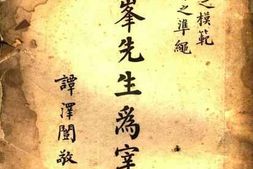 之模範
之準繩
峯先生爲宰
譚澤闓敬